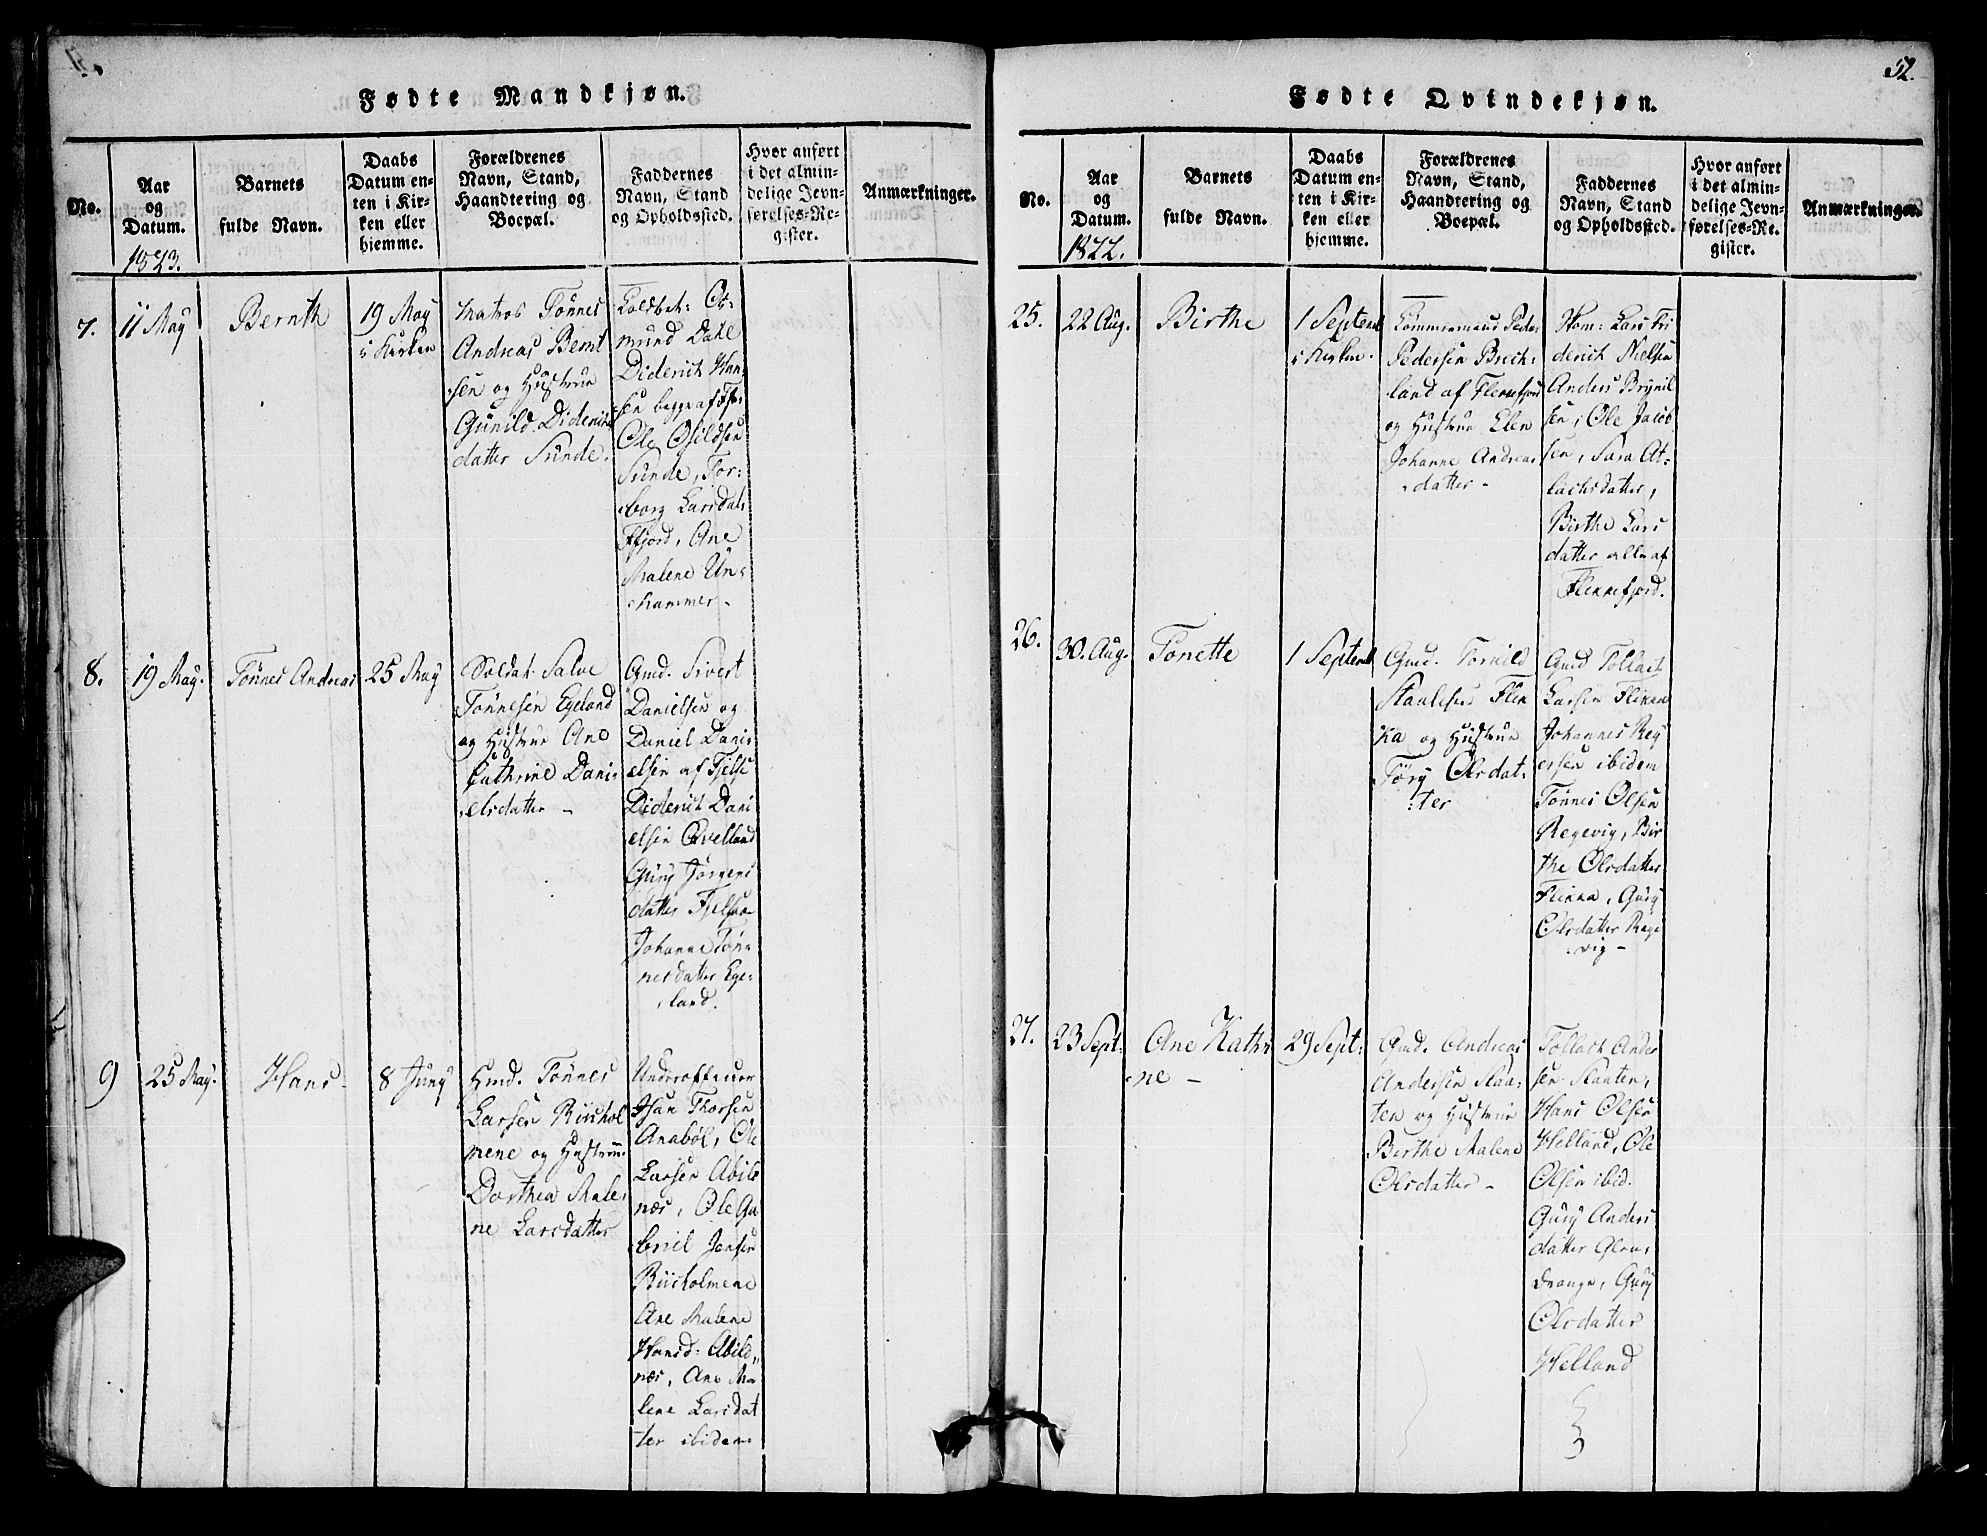 Fødte Mandkjøn.
No.
Aar
og
Datum.
1823.
Barnets
fulde Navn.
Daabs
Datum en-
ten i Kir-
ken eller
hjemme.
Forældrenes
Navn, Stand,
Haandtering og
Boepæl.
Faddernes
Navn, Stand
og Opholdssted.
Hvor anført
i det almin-
delige Jevn-
førelses-Re-
gister.
Anmærkninger.
7.
11 May
Bernth
19 May
i Kirken
Matros Tønnes
Andreas Bernt
sen og Hustrue
Gunild Diderichs
datter Sunde.
mund Dahl
Diderich Han-
sen begge af Ff:
Ole Osildsen
Sunde, Tor-
borg Larsdat:
Ffjord, Ane
Malene Un-
hammer-
8.
19 May.
Tønnes Andreas
25 May
Soldat Salve
Tønnesen Egeland
og Hustrue Ane
Cathrine Dani-
elsdatter -
Gmd. Sivert
Danielsen og
Daniel Dani-
elsen af Fjelse
Diderich Dani
elsen Qvelland
Gury Jørgens
datter Fjelse
Johanne Tøn-
nesdatter Ege-
land.
9
25 May.
Hans-
8 Juny
Hmd. Tønnes
Larsen Riishol
mene og Hustrue
Dorthea Male-
ne Larsdatter
Underofficeer
Isan Thorsen
Anabøl, Ole
Larsen Abild
næs, Ole Ga
briel Jensen
Riisholmene
Ane Malene
Hansd: Abild-
næs, Ane Ma
lene Larsdat
ter ibidem
52.
Fødte Qvindekjøn.
No.
Aar
og
Datum.
1822.
Barnets
fulde Navn.
Daabs
Datum en-
ten i Kir-
ken eller
hjemme.
Forældrenes
Navn, Stand,
Haandtering og
Boepæl.
Faddernes
Navn, Stand
og Opholdssted.
Hvor anført
i det almin-
delige Jevn-
førelses-Re-
gister.
Anmærkninger.
25.
22 Aug.
Birthe
1 Septemb
i Kirken.
Tømmermand Peder
Pedersen Brech-
land af Flekkefjord
og Hustrue Elen
Johanne Andreas
datter-
Hom: Lars Fri
derich Nielsen
Anders Brynil
sen, Ole Jacob
sen, Sara At-
lachsdatter,
Birthe Lars
datter alle af
Flekkefjord.
26.
30. Aug.
Tonette
1 Septemb
Gmd. Tornild
Staalesen Flik
ka og Hustrue
Tøry Olsdat-
ter
Gmd Tollach
Larsen Flikka
Johannes Rey
ersen ibidem
Tønnes Olsen
Regevig, Bir
the Olsdatter
Flikka, Gury
Olsdatter Rege
vig-
27.
23 Sept:
Ane Kathri
ne -
29 Sept:
Gmd. Andreas
Andersen Slaa-
ten og Hustrue
Birthe Malene
Olsdatter-
Tollach Ander
sen Slaaten,
Hans Olsen
Helland, Ole
Olsen ibid.
Gury Anders
datter Glen-
drange, Gury
Olsdatter
Helland